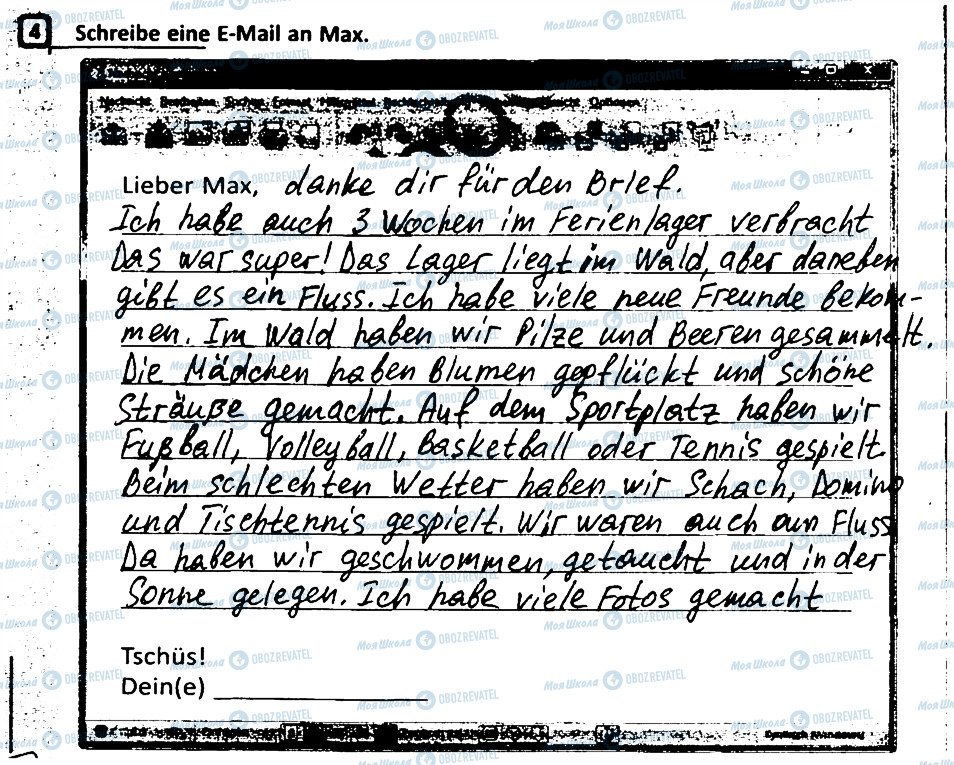 4 Schreibe eine E-Mail an Max.
Lieber Max, danke dir für den Brief.
Ich habe auch 3 Wochen im Ferienlager verbracht
Das war super! Das Lager liegt im Wald, aber daneben
gibt es ein Fluss. Ich habe viele neue Freunde bekom-
men. Im Wald haben wir Pilze und Beeren gesammelt.
Die Mädchen haben Blumen gepflückt und schöne
Sträuße gemacht. Auf dem Sportplatz haben wir
Fußball, Volleyball, Basketball oder Tennis gespielt.
Beim schlechten Wetter haben wir Schach, Domino
und Tischtennis gespielt. Wir waren auch am Fluss
Da haben wir geschwommen, getaucht und in der
Sonne gelegen. Ich habe viele Fotos gemacht
Tschüs!
Dein(e)
Моя Школа OBOZREVATEL